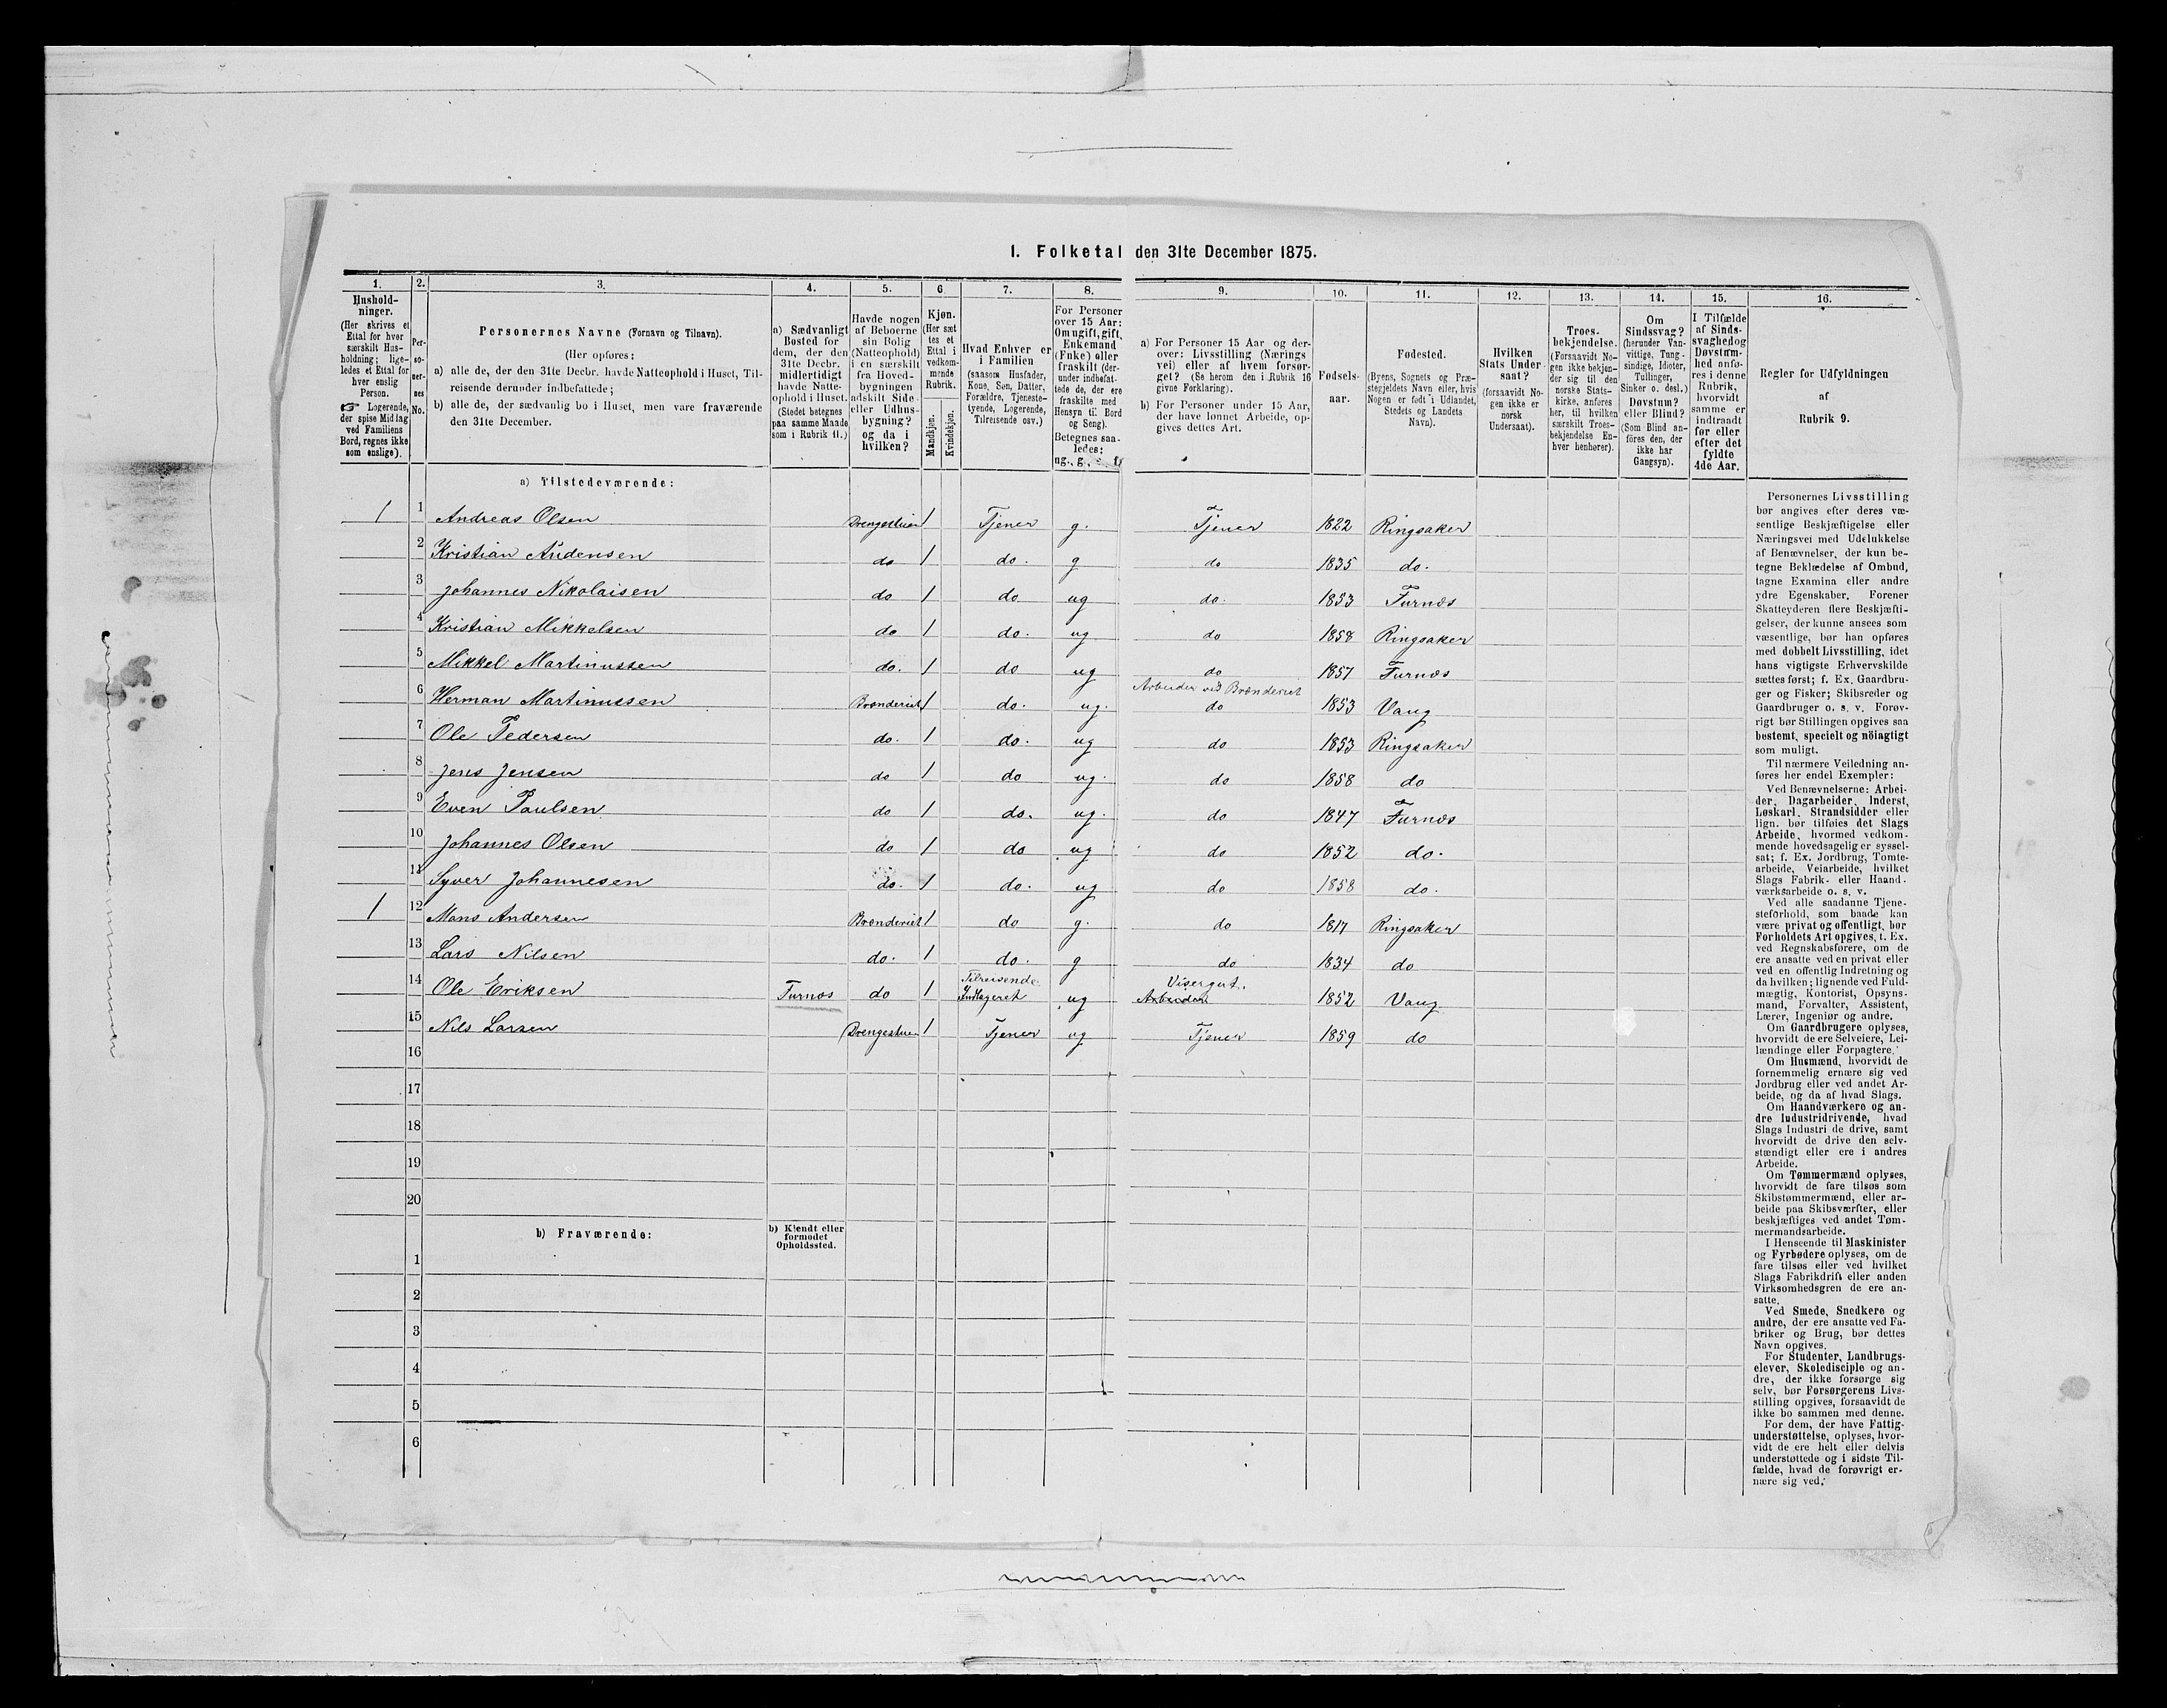 I. Folketal den 31te December 1875.
1. 2. 3. 4. 5. 6 7. 8. 9. 10. 11. 12. 13. 14. 15. 16.
Hushold-
ninger.
(Her skrives et
Ettal for hver
særskilt Hus-
holdning; lige-
ledes et Ettal for
hver enslig
Person.
☞ Logerende,
der spise Middag
ved Familiens
Bord, regnes ikke
som enslige).
Per-
so-
ner-
nes
No.
Personernes Navne (Fornavn og Tilnavn).
(Her opføres:
a) alle de, der den 31te Decbr. havde Natteophold i Huset, Til-
reisende derunder indbefattede;
b) alle de, der sædvanlig bo i Huset, men vare fraværende
den 31te December.
a) Sædvanligt
Bosted for
dem, der den
31te Decbr.
midlertidigt
havde Natte-
ophold i Huset.
(Stedet betegnes
paa samme Maade
som i Rubrik 11.)
Havde nogen
af Beboerne
sin Bolig
(Natteophold)
i en særskilt
fra Hoved-
bygningen
adskilt Side-
eller Udhus-
bygning?
og da i
hvilken?
Kjøn.
(Her sæt
tes et
Ettal i
vedkom-
mende
Rubrik.
Mandkjøn.
Kvindekjøn.
Hvad Enhver er
i Familien
(saasom Husfader,
Kone, Søn, Datter,
Forældre, Tjeneste-
tyende, Logerende,
Tilreisende osv.)
For Personer
over 15 Aar:
Om ugift, gift,
Enkemand
(Enke) eller
fraskilt (der-
under indbefat-
tede de, der ere
fraskilte med
Hensyn til Bord
og Seng).
Betegnes saa-
ledes:
ug., g.,
a) For Personer 15 Aar og der-
over: Livsstilling (Nærings
vei) eller af hvem forsør-
get? (Se herom den i Rubrik 16
givne Forklaring).
b) For Personer under 15 Aar,
der have lønnet Arbeide, op-
gives dettes Art.
Fødsels-
aar.
Fødested.
(Byens, Sognets og Præ-
stegjeldets Navn eller, hvis
Nogen er født i Udlandet,
Stedets og Landets
Navn).
Hvilken
Stats Under-
saat?
(forsaavidt No-
gen ikke er
norsk
Undersaat).
Troes-
bekjendelse.
(Forsaavidt No-
gen ikke bekjen-
der sig til den
norske Stats-
kirke, anføres
her, til hvilken
særskilt Troes-
bekjendelse En-
hver henhører).
Om
Sindssvag?
(herunder Van-
vittige, Tung-
sindige, Idioter,
Tullinger,
Sinker o. desl.)
Døvstum?
eller Blind?
(Som Blind an-
føres den, der
ikke har
Gangsyn).
I Tilfælde
af Sinds-
svaghed og
Døvstum-
hed anfø-
res i denne
Rubrik,
hvorvidt
samme er
indtraadt
før eller
efter det
fyldte
4de Aar.
Regler for Udfyldningen
af
Rubrik 9.
a) Tilstedeværende:
1 1 Andreas Olsen Drengestuen 1 Tjener g. Tjener 1822 Ringsaker
2 Kristian Andersen do 1 do. g do 1835 do.
3 Johannes Nikolaisen do 1 do ug do. 1853 Furnæs
4 Kristian Mikkelsen do 1 do. ug. do 1858 Ringsaker
5 Mikkel Martinussen do. 1 do ug do 1857 Furnæs
Arbeider ved Brænderiet
6 Herman Martinussen Brænderiet 1 do. ug. do 1853 Vang
7 Ole Pedersen do. 1 do. ug do 1853 Ringsaker
8 Jens Jensen do 1 do ug. do 1858 do
9 Even Paulsen do 1 do. ug. do 1847 Furnæs
10 Johannes Olsen do 1 do ug do 1852 do.
11 Syver Johannesen do. 1 do. ug do 1858 do.
1 12 Mons Andersen Brænderiet 1 do g. do 1817 Ringsaker
13 Lars Nilsen do. 1 do. g do 1834 do
Tilreisende Visergut.
14 Ole Eriksen Furnæs do 1 Indlogeret ug Arbeider 1852 Vang
15 Nils Larsen Drengestuen 1 Tjener ug Tjener 1859 do
16
17
18
19
20
b) Fraværende:
b) Kjendt eller
formodet
Opholdssted.
1
2
3
4
5
6
Personernes Livsstilling
bør angives efter deres væ-
sentlige Beskjæftigelse eller
Næringsvei med Udelukkelse
af Benævnelser, der kun be-
tegne Beklædelse af Ombud,
tagne Examina eller andre
ydre Egenskaber. Forener
Skatteyderen flere Beskjæfti-
gelser, der kunne ansees som
væsentlige, bør han opføres
med dobbelt Livsstilling, idet
hans vigtigste Erhvervskilde
sættes først; f. Ex. Gaardbru-
ger og Fisker; Skibsreder og
Gaardbruger o. s. v. Forøv-
rigt bør Stillingen opgives saa
bestemt, specielt og nøiagtigt
som muligt.
Til nærmere Veiledning an-
føres her endel Exempler:
Ved Benævnelserne: Arbei-
der, Dagarbeider, Inderst,
Løskarl, Strandsidder eller
lign. bør tilføies det Slags
Arbeide, hvormed vedkom-
mende hovedsagelig er syssel-
sat; f. Ex. Jordbrug, Tomte-
arbeide, Veiarbeide, hvilket
Slags Fabrik- eller Haand-
værksarbeide o. s. v.
Ved alle saadanne Tjene-
steforhold, som baade kan
være privat og offentligt, bør
Forholdets Art opgives, t. Ex.
ved Regnskabsførere, om de
ere ansatte ved en privat eller
ved en offentlig Indretning og
da hvilken; lignende ved Fuld-
mægtig, Kontorist, Opsyns-
mand, Forvalter, Assistent,
Lærer, Ingeniør og andre.
Om Gaardbrugere oplyses,
hvorvidt de ere Selveiere, Lei-
lændinge eller Forpagtere.
Om Husmænd, hvorvidt de
fornemmelig ernære sig ved
Jordbrug eller ved andet Ar-
beide, og da af hvad Slags.
Om Haandværkere og an-
dre Industridrivende, hvad
Slags Industri de drive, samt
hvorvidt de drive den selv-
stændigt eller ere i andres
Arbeide.
Om Tømmermænd oplyses,
hvorvidt de fare tilsøs som
Skibstømmermænd, eller ar-
beide paa Skibsværfter, eller
beskjæftiges ved andet Tøm-
mermandsarbeide.
I Henseende til Maskinister
og Fyrbødere oplyses, om de
fare tilsøs eller ved hvilket
Slags Fabrikdrift eller anden
Virksomhedsgren de ere an-
satte.
Ved Smede, Snedkere og
andre, der ere ansatte ved Fa-
briker og Brug, bør dettes
Navn opgives.
For Studenter, Landbrugs-
elever, Skoledisciple og an-
dre, der ikke forsørge sig
selv, bør Forsørgerens Livs-
stilling opgives, forsaavidt de
ikke bo sammen med denne.
For dem, der have Fattig-
understøttelse, oplyses, hvor-
vidt de ere helt eller delvis
understøttede og i sidste Til-
fælde, hvad de forøvrigt er-
nære sig ved.